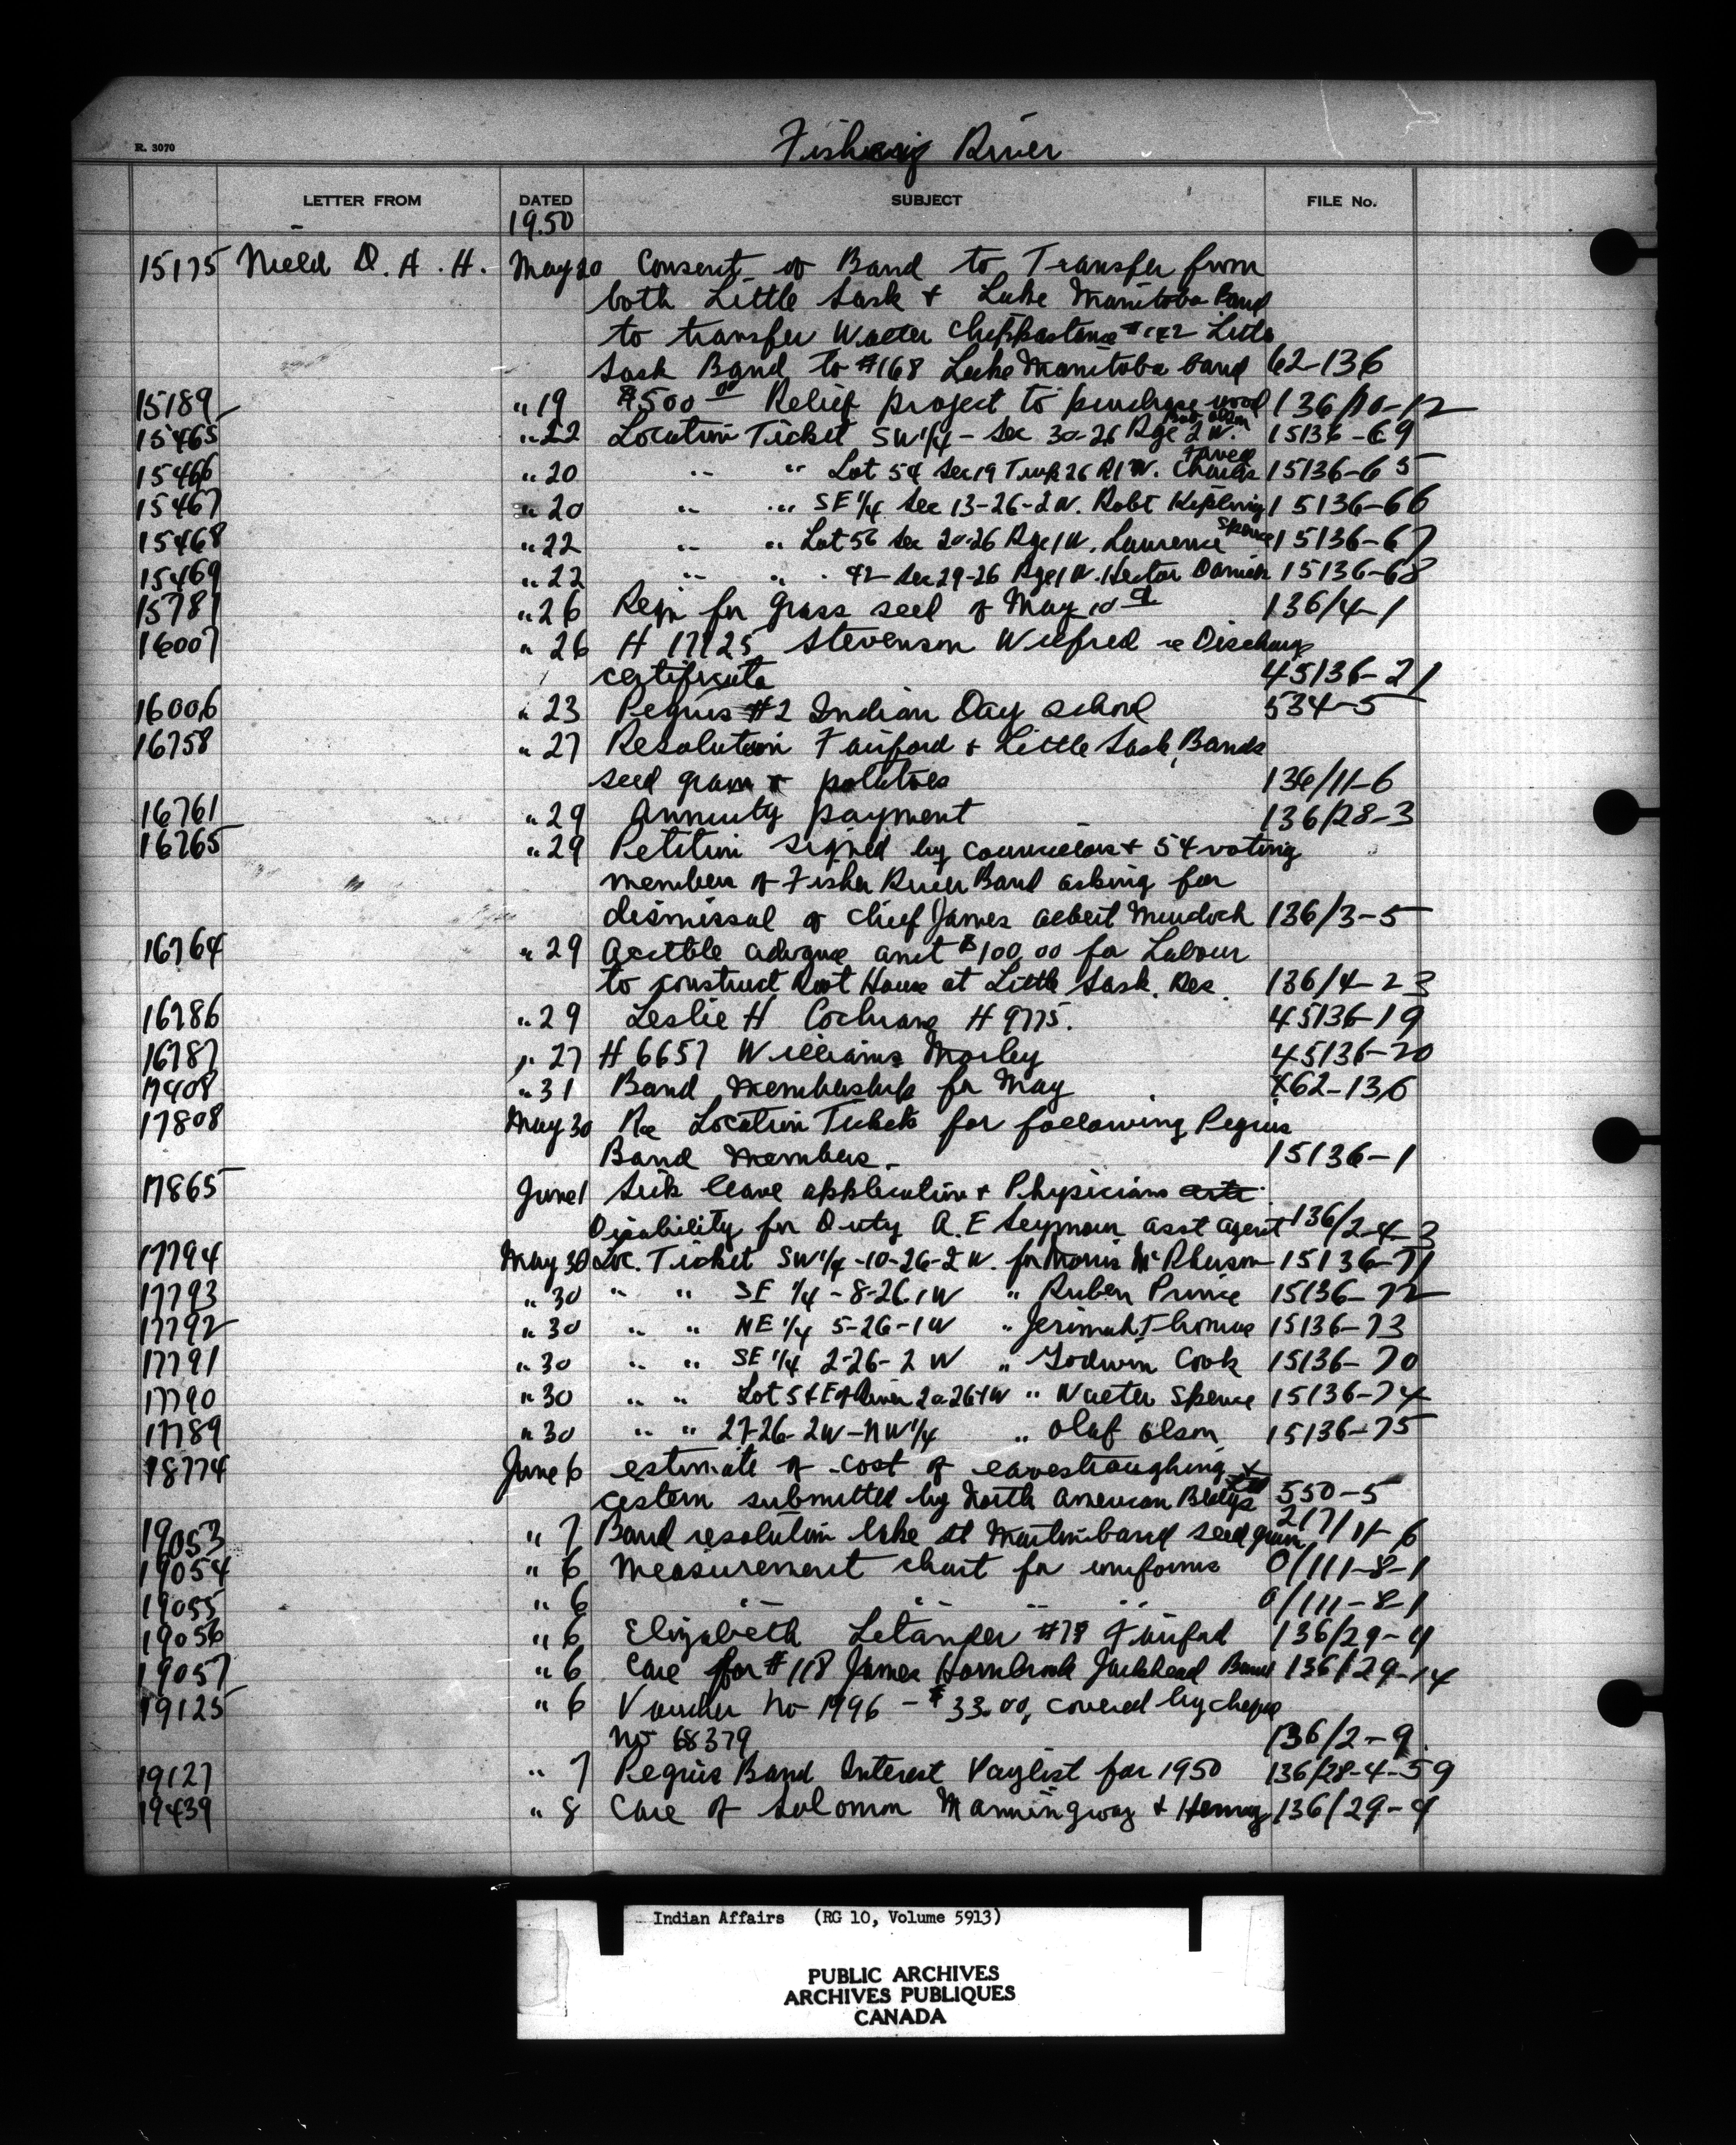 R. 3070
Fishing River
LETTER FROM DATED SUBJECT FILE No.
1950
15175 Nield D. A. H. May 20 Consent of Band to Transfer from
both Little Sask + Lake Manitoba Band
to transfer Walter #142 Little
Sask Band to #168 Lake Manitoba band 62-136
15189 " 19 $500 00 Relief project to purchase wood 136/10-12
15465 " 22 Location Ticket SW 1/4 - Sec 30-26 Rge 2 W. Olson 15136-69
15466 " 20 " " Lot 54 Sec 19 Twp 26 R1W. Charles 15136-65
15467 " 20 " " SE 1/4 Sec 13-26-2W. Robt Kipling 15136-66
15468 " 22 " " Lot 56 Sec 20-26 Rge 1 W. Laurence Spence 15136-67
15469 " 22 " " 42 - Sec 29-26 Rge 1 W. Hector Daniels 15136-68
15781 " 26 Reqn for grass seed of May 10th 136/4-1
16007 " 26 H 17725 Stevenson Wilfred re Discharge
certificate 45136-21
16006 " 23 Peguis #2 Indian Day School 534-5
16758 " 27 Resolution Fairford + Little Sask, Bands
seed grain + potatoes 136/11-6
16761 " 29 Annuity payment 136/28-3
16765 " 29 Petition signed by councillors + 54 voting
members of Fisher River Band asking for
dismissal of Chief James Albert Murdock 136/3-5
16764 " 29 Acctble advance amt $100.00 for Labour
to construct Root House at Little Sask. Res. 136/4-23
16786 " 29 Leslie H Cochrane H 9775. 45136-19
16787 " 27 H 6657 Williams Morley 45136-20
17408 " 31 Band Membership for May 462-136
17808 May 30 Re Location Tickets for following Peguis
Band Members. 15136-1
17865 June 1 Sick leave application + Physicians
Disability for Duty A. E Seymour asst agent 136/2-4-3
17794 May 30 Loc. Ticket SW 1/4 -10-26-2 W. for Morris McPherson 15136-71
17793 " 30 " " SE 1/4 - 8-26.1W " Ruben Prince 15136-72
17792 " 30 " " NE 1/4 5-26-1W " Jerimah Thomas 15136-73
17791 " 30 " " SE 1/4 2-26-2 W " Godwin Cook 15136-70
17790 " 30 " " Lot 54 E of River 20-26-1W " Walter Spence 15136-74
17789 " 30 " " 27-26-2W-NW 1/4 " Olaf Olson 15136-75
18774 June 6 estimate of cost of eavestroughing +
cistern submitted by North American Bldgs Ltd 550-5
19053 " 7 Band resolution Lake St Martin band seed grain 217/11-6
19054 " 6 Measurement chart for uniforms 0/111-8-1
19055 " 6 " " " " 0/111-8-1
19056 " 6 Elizabeth Letander #78 Fairford 136/29-4
19057 " 6 Care for #118 James Hornbrook Jackhead Band 136/29-14
19125 " 6 Voucher No 1996 - $33.00, covered by cheque
No 68379 136/2-9.
19127 " 7 Peguis Band Interest Paylist for 1950 136/28-4-59
19439 " 8 Care of Solomon Manningway + Henry 136/29-4
Indian Affairs (RG 10, Volume 5913)
PUBLIC ARCHIVES
ARCHIVES PUBLIQUES
CANADA